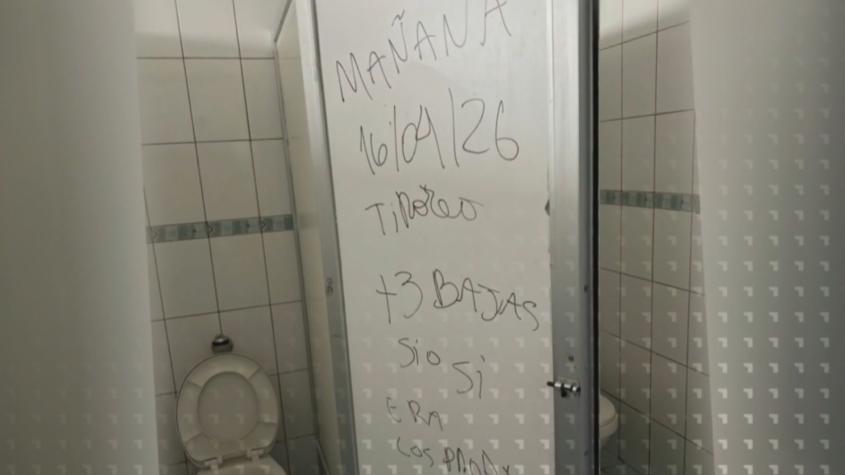 MAÑANA
16/04/26
TIROTEO
+3 BAJAS
Sio
Si
ERA
LOS